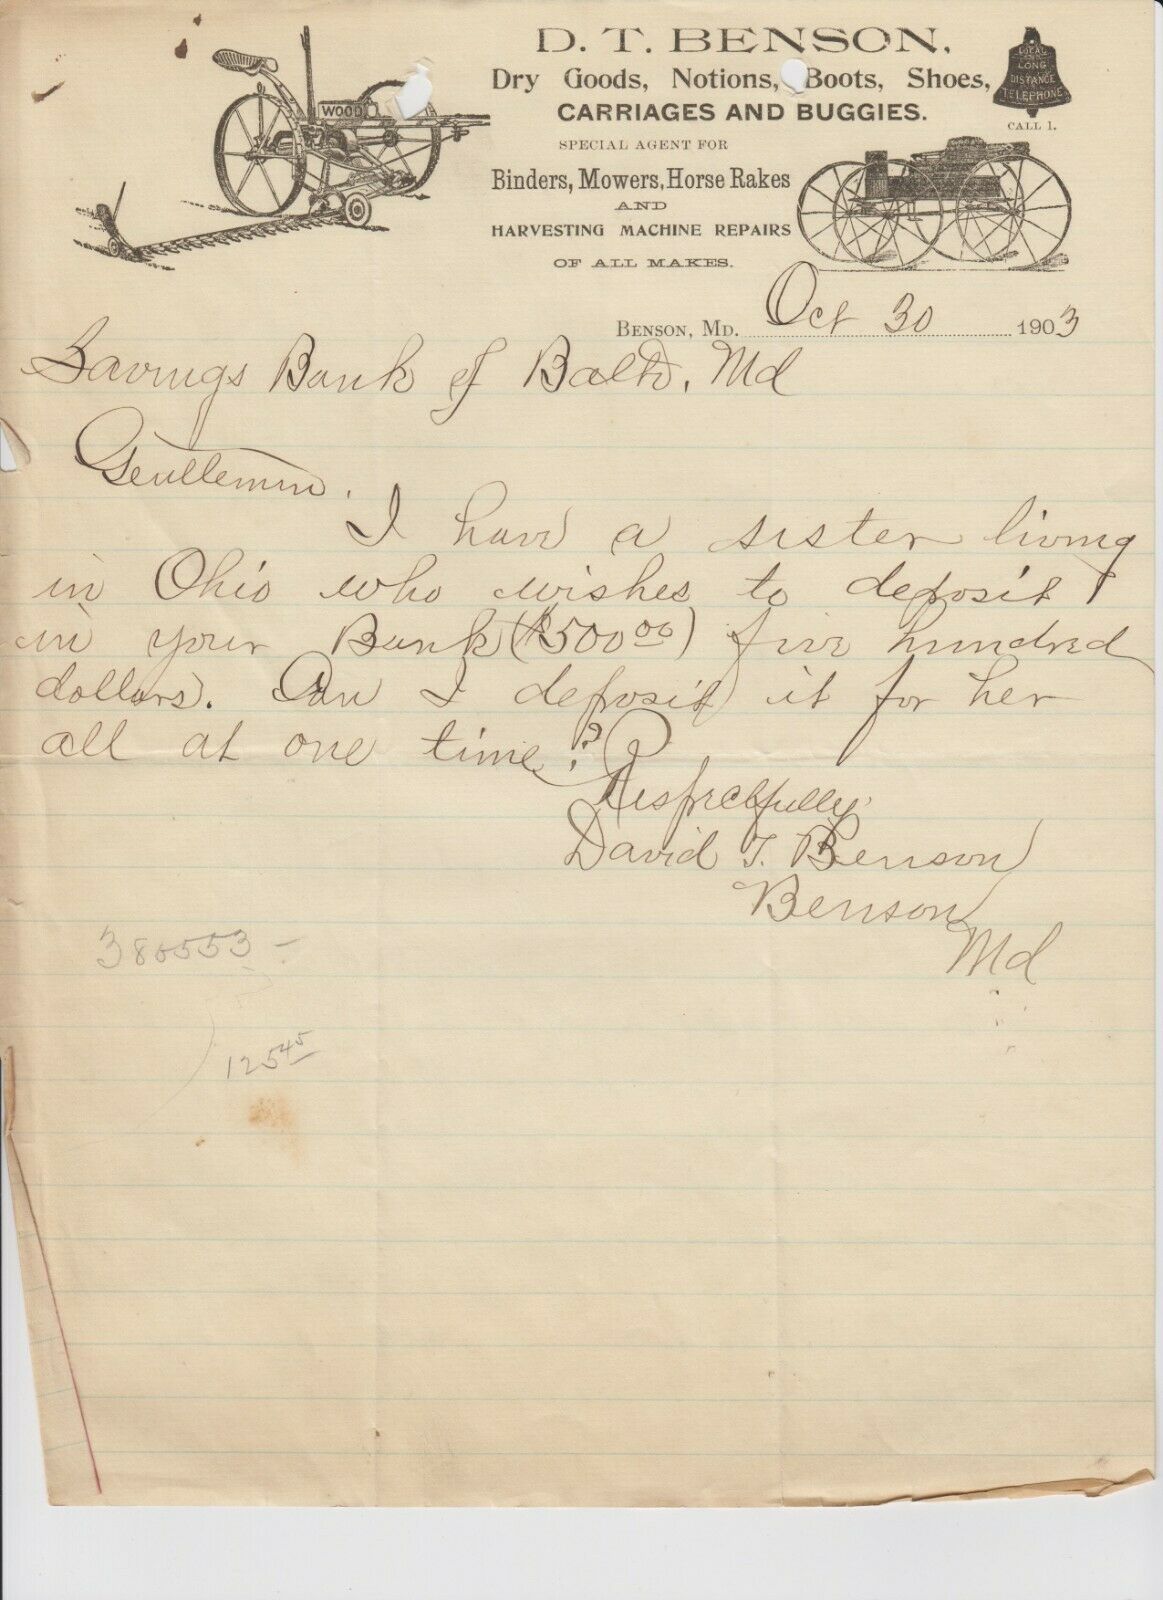 D. T. BENSON,
Dry Goods, Notions, Boots, Shoes,
CARRIAGES AND BUGGIES.
SPECIAL AGENT FOR
Binders, Mowers, Horse Rakes
AND
HARVESTING MACHINE REPAIRS
OF ALL MAKES.
WOOD
LOCAL
AND
LONG
DISTANCE
TELEPHONE
CALL 1.
BENSON, MD. Oct 30 1903
Savings Bank of Balto, Md
Gentlemen.
I have a sister living
in Ohio who wishes to deposit
in your Bank ($500 00) five hundred
dollars. Can I deposit it for her
all at one time?
Respectfully
David T. Benson
Benson
Md
380553 -
125 45